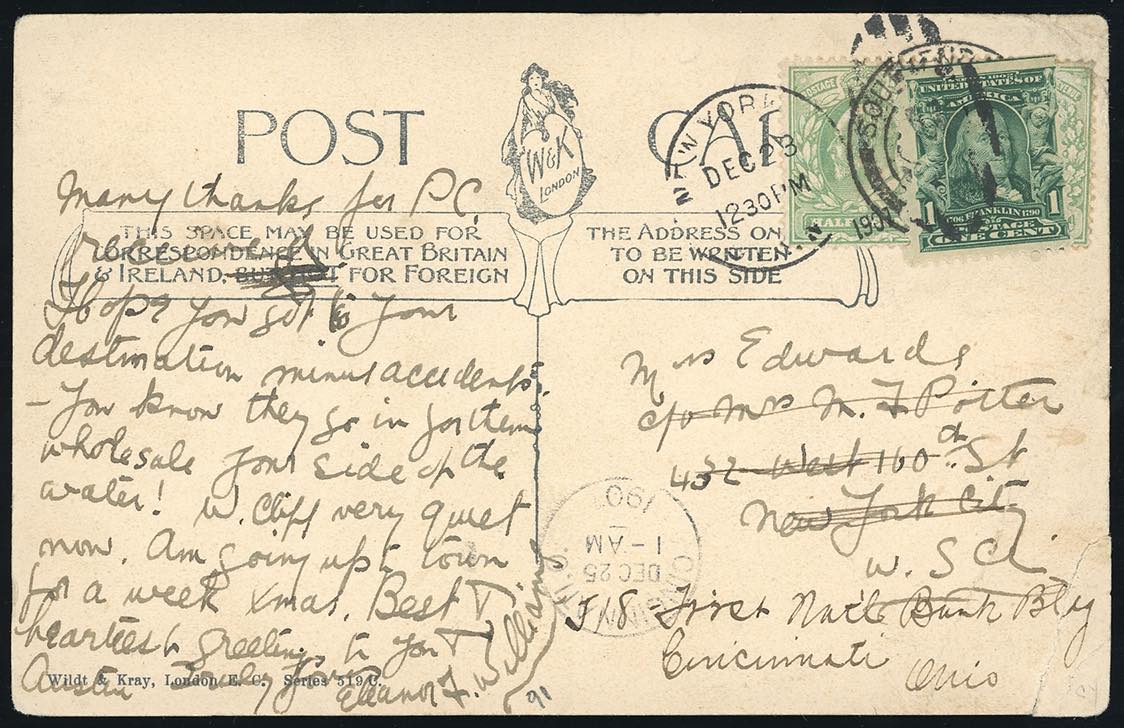 POST CAR
W&K
LONDON
NEW YORK, N.Y.
DEC 23
12 30 PM
190
SOUTHEND
POSTAGE
HALF
SERIES 1902
UNITED STATES OF
AMERICA
1 1706 FRANKLIN 1790 1
POSTAGE
ONE CENT
THIS SPACE MAY BE USED FOR
CORRESPONDENCE IN GREAT BRITAIN
& IRELAND, BUT NOT FOR FOREIGN
THE ADDRESS ON
TO BE WRITTEN
ON THIS SIDE
Many thanks for P.C.
I hope you got to your
destination minus accidents.
– You know they go in for them
wholesale your side of the
water! W. Cliff very quiet
now. Am going up to town
for a week Xmas. Best &
heartiest greetings to you &
Austin Eleanor F. Williams
Mrs Edwards
c/o Mrs M. F. Potter
432 West 160th St
New York City
U.S.A.
518 First Nat'l Bank Bldg
Cincinnati
Ohio
CINCINNATI, O.
DEC 25
1 – AM
190
Wildt & Kray, London E. C. Series 519 C.
91